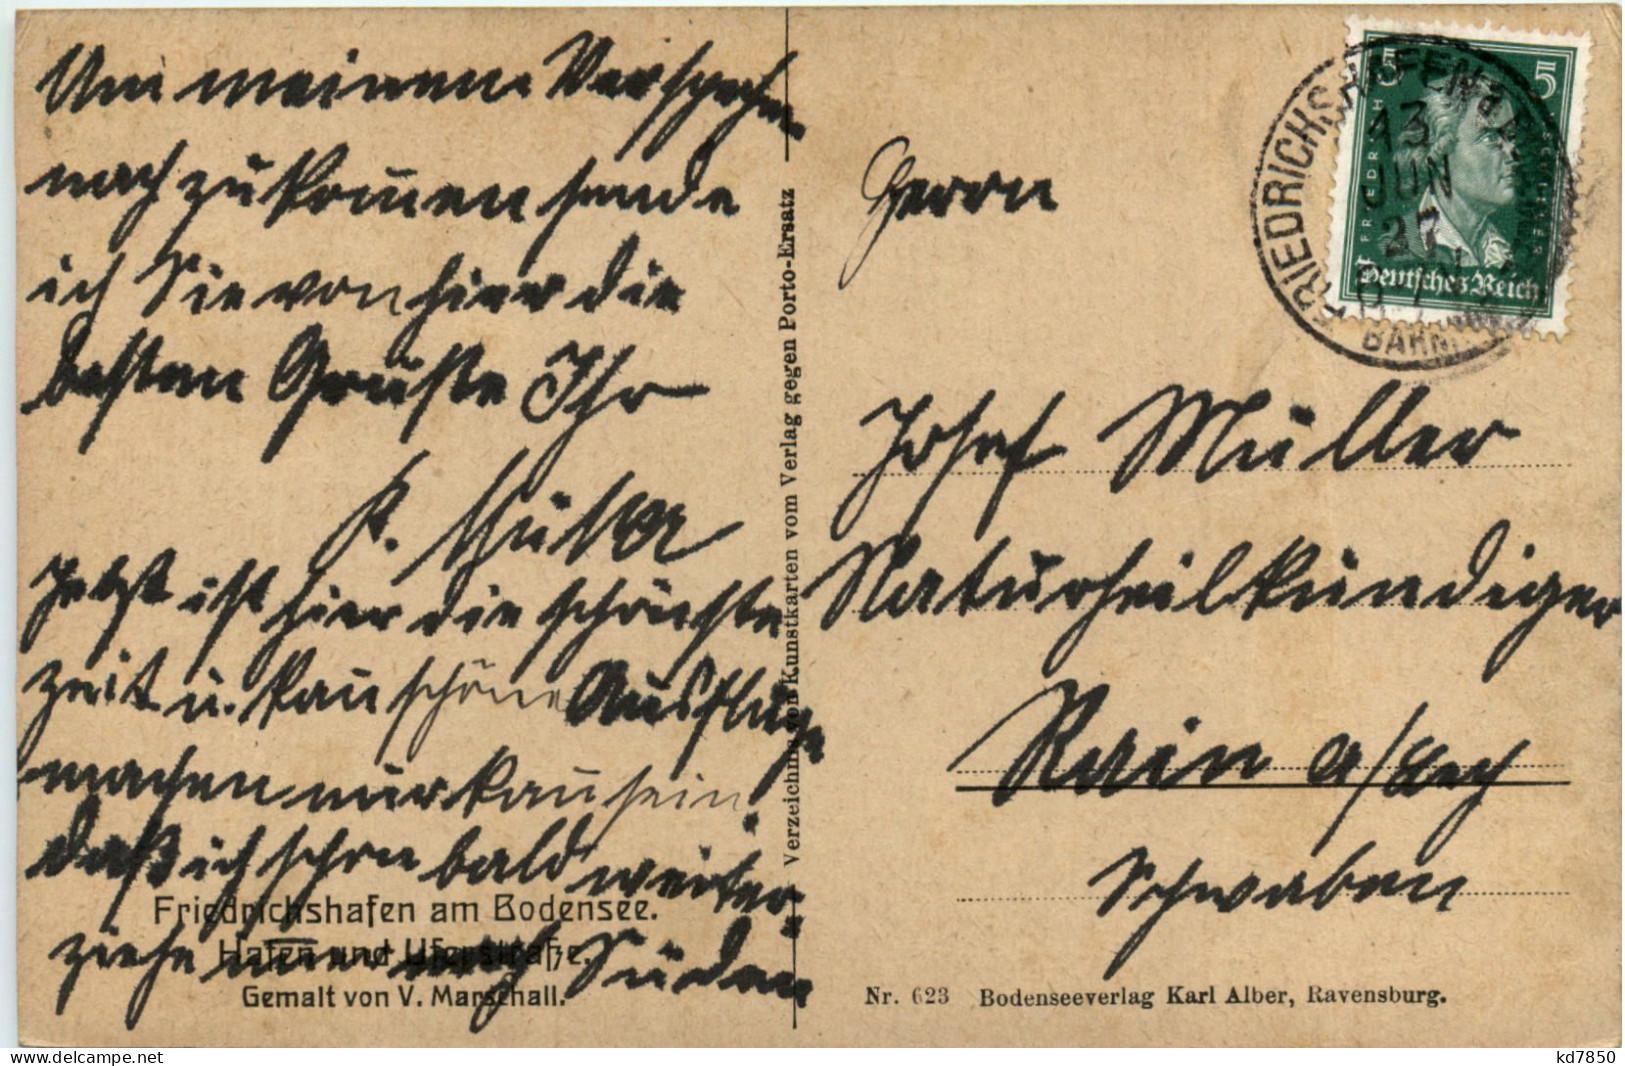 Um meinem Versprechen
nachzukommen sende
ich Sie von hier die
besten Grüße Ihr
K. Müller
Jetzt ist hier die schönste
Zeit u. kan̄ schöne Ausflüge
machen nur kan̄ sein,
daß ich schon bald weiter
ziehe nach Süden
Friedrichshafen am Bodensee.
Hafen und Uferstraße.
Gemalt von V. Marschall.
Verzeichn. von Kunstkarten vom Verlag gegen Porto-Ersatz
FRIEDRICHSHAFEN
13
JUN
27
BAHNH
5 5
FRIEDRICH SCHILLER
Deutsches Reich
Herrn
Josef Müller
Naturheilkündiger
Rain a/Lech
Schwaben
Nr. 623 Bodenseeverlag Karl Alber, Ravensburg.
www.delcampe.net
kd7850